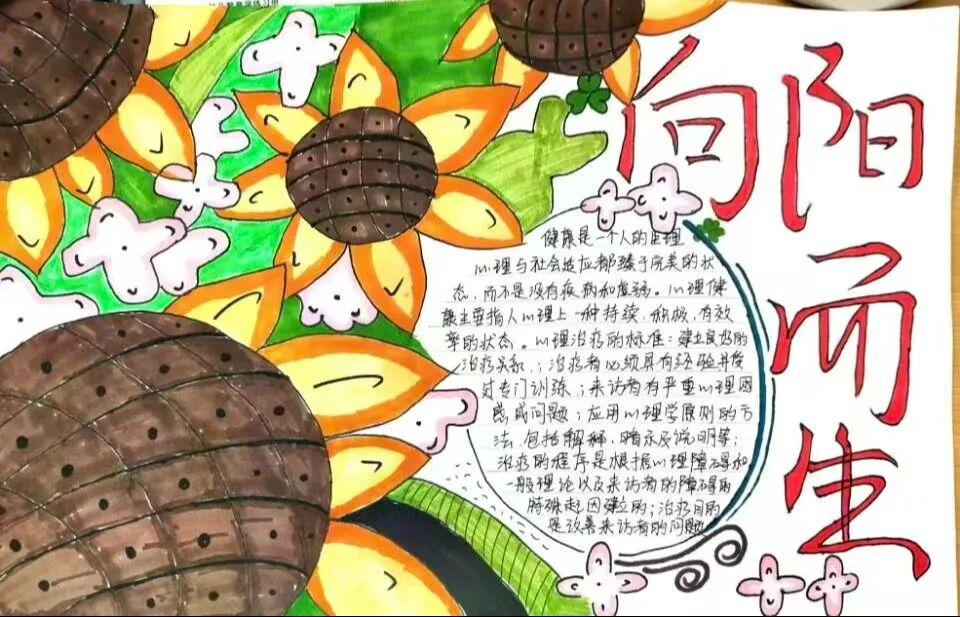 向阳而生
健康是一个人的生理
心理与社会适应都臻于完美的状
态,而不是没有疾病和虚弱。心理健
康主要指人心理上一种持续、积极、有效
率的状态。心理治疗的标准:建立良好的
治疗关系;治疗者必须具有经验并受
过专门训练;来访者有严重心理困
惑或问题;应用心理学原则的方
法,包括解释、暗示及说明等;
治疗的程序是根据心理障碍和
一般理论以及来访者的障碍的
特殊起因建立的;治疗目的
是改善来访者的问题